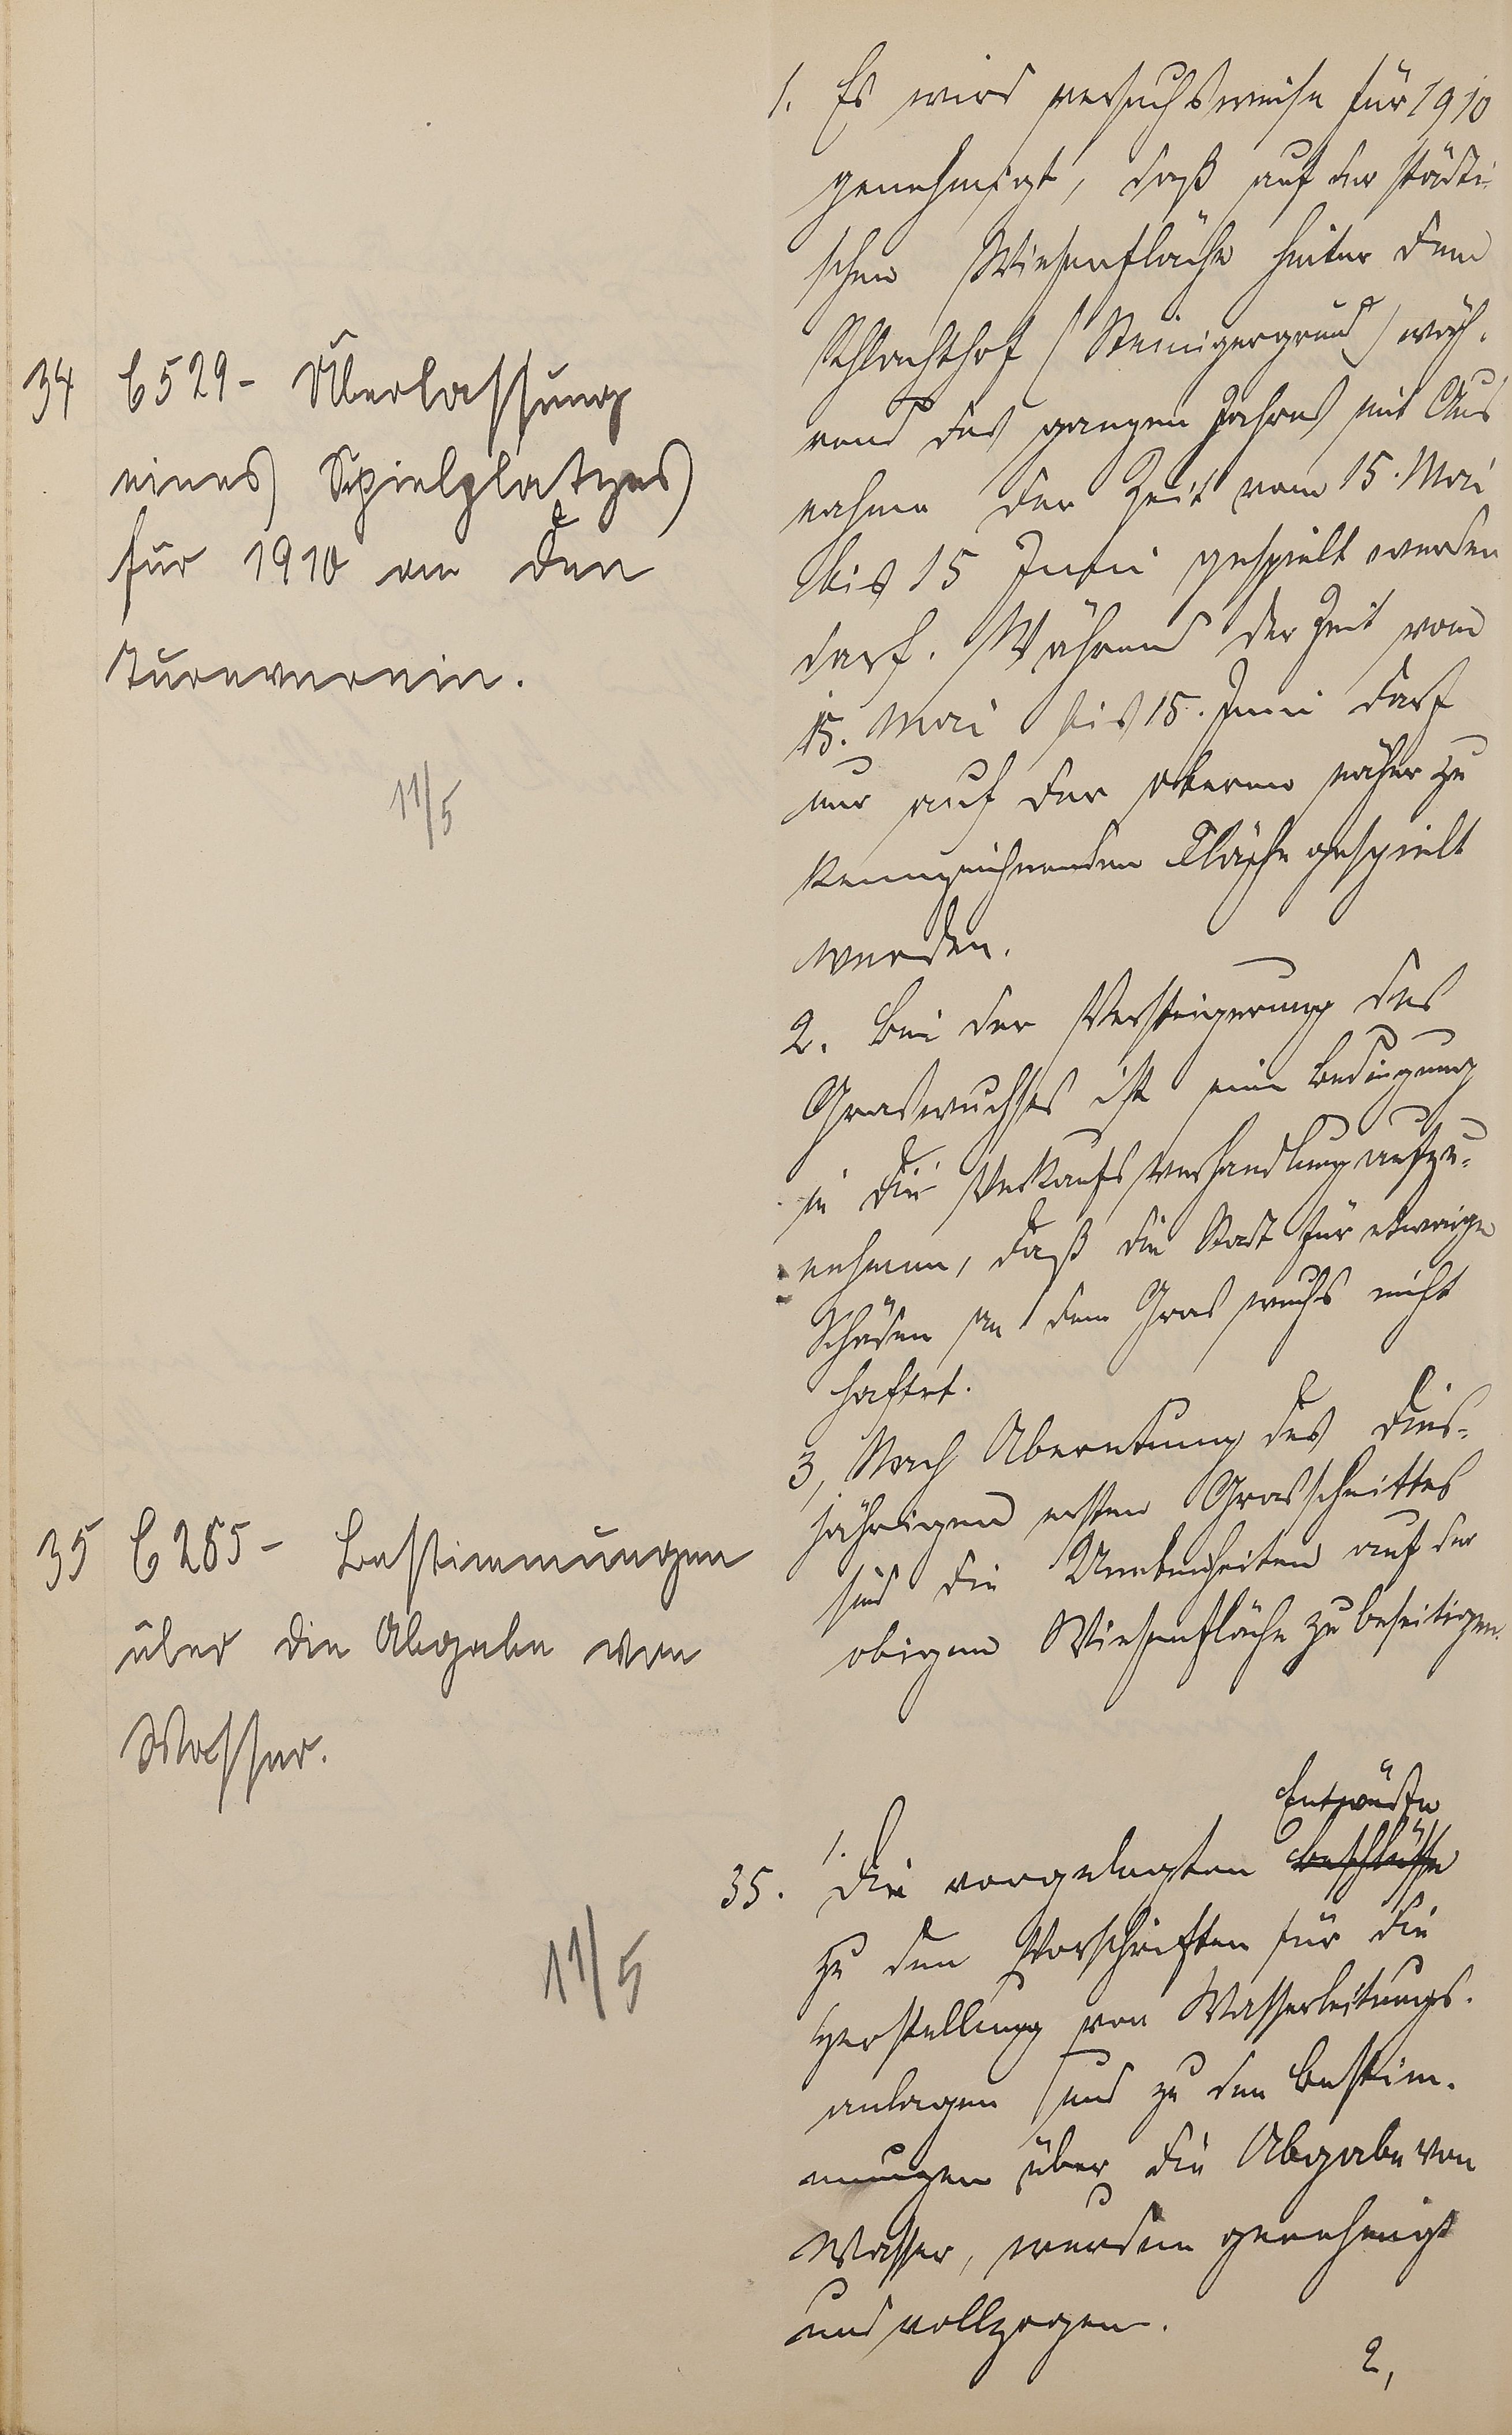 34 C 529 - Überlassung
eines Spielplatzes
für 1910 an den
Turnverein.
11/5
1. Es wird versuchsweise für 1910
genehmigt, daß auf der städti-
schen Wiesenfläche hinter dem
Schlachthof (Steinigergrund) wäh-
rend des ganzen Jahres mit Aus
nahme der Zeit vom 15. Mai
bis 15 Juni gespielt werden
darf. Während der Zeit vom
15. Mai bis 15. Juni darf
nur auf der oberen näher zu
kennzeichnenden Fläche gespielt
werden.
2. Bei der Versteigerung des
Graswuchses ist eine Bedingung
in die Verkaufsverhandlung aufzu-
nehmen, daß die Stadt für etwaige
Schäden an dem Graswuchs nicht
haftet.
3, Nach Aberntung des dies-
jährigen ersten Grasschnittes
sind die Unebenheiten auf der
obigen Wiesenfläche zu beseitigen.
35 C 285 - Bestimmungen
über die Abgabe von
Wasser.
11/5
Entwürfe
35. 1. Die vorgelegten Beschlüsse
zu den Vorschriften für die
Herstellung von Wasserleitungs-
anlagen und zu den Bestim-
mungen über die Abgabe von
Wasser, werden genehmigt
und vollzogen.
2,